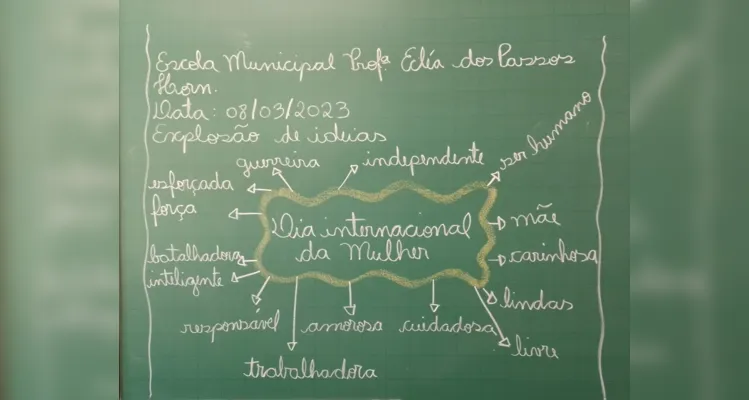 Escola Municipal Profª. Eclía dos Passos
Horn.
Data: 08/03/2023
Explosão de ideias
guerreira
independente
ser humano
esforçada
força
Dia internacional
da Mulher
mãe
carinhosa
batalhadora
inteligente
lindas
responsável
amorosa
cuidadosa
livre
trabalhadora